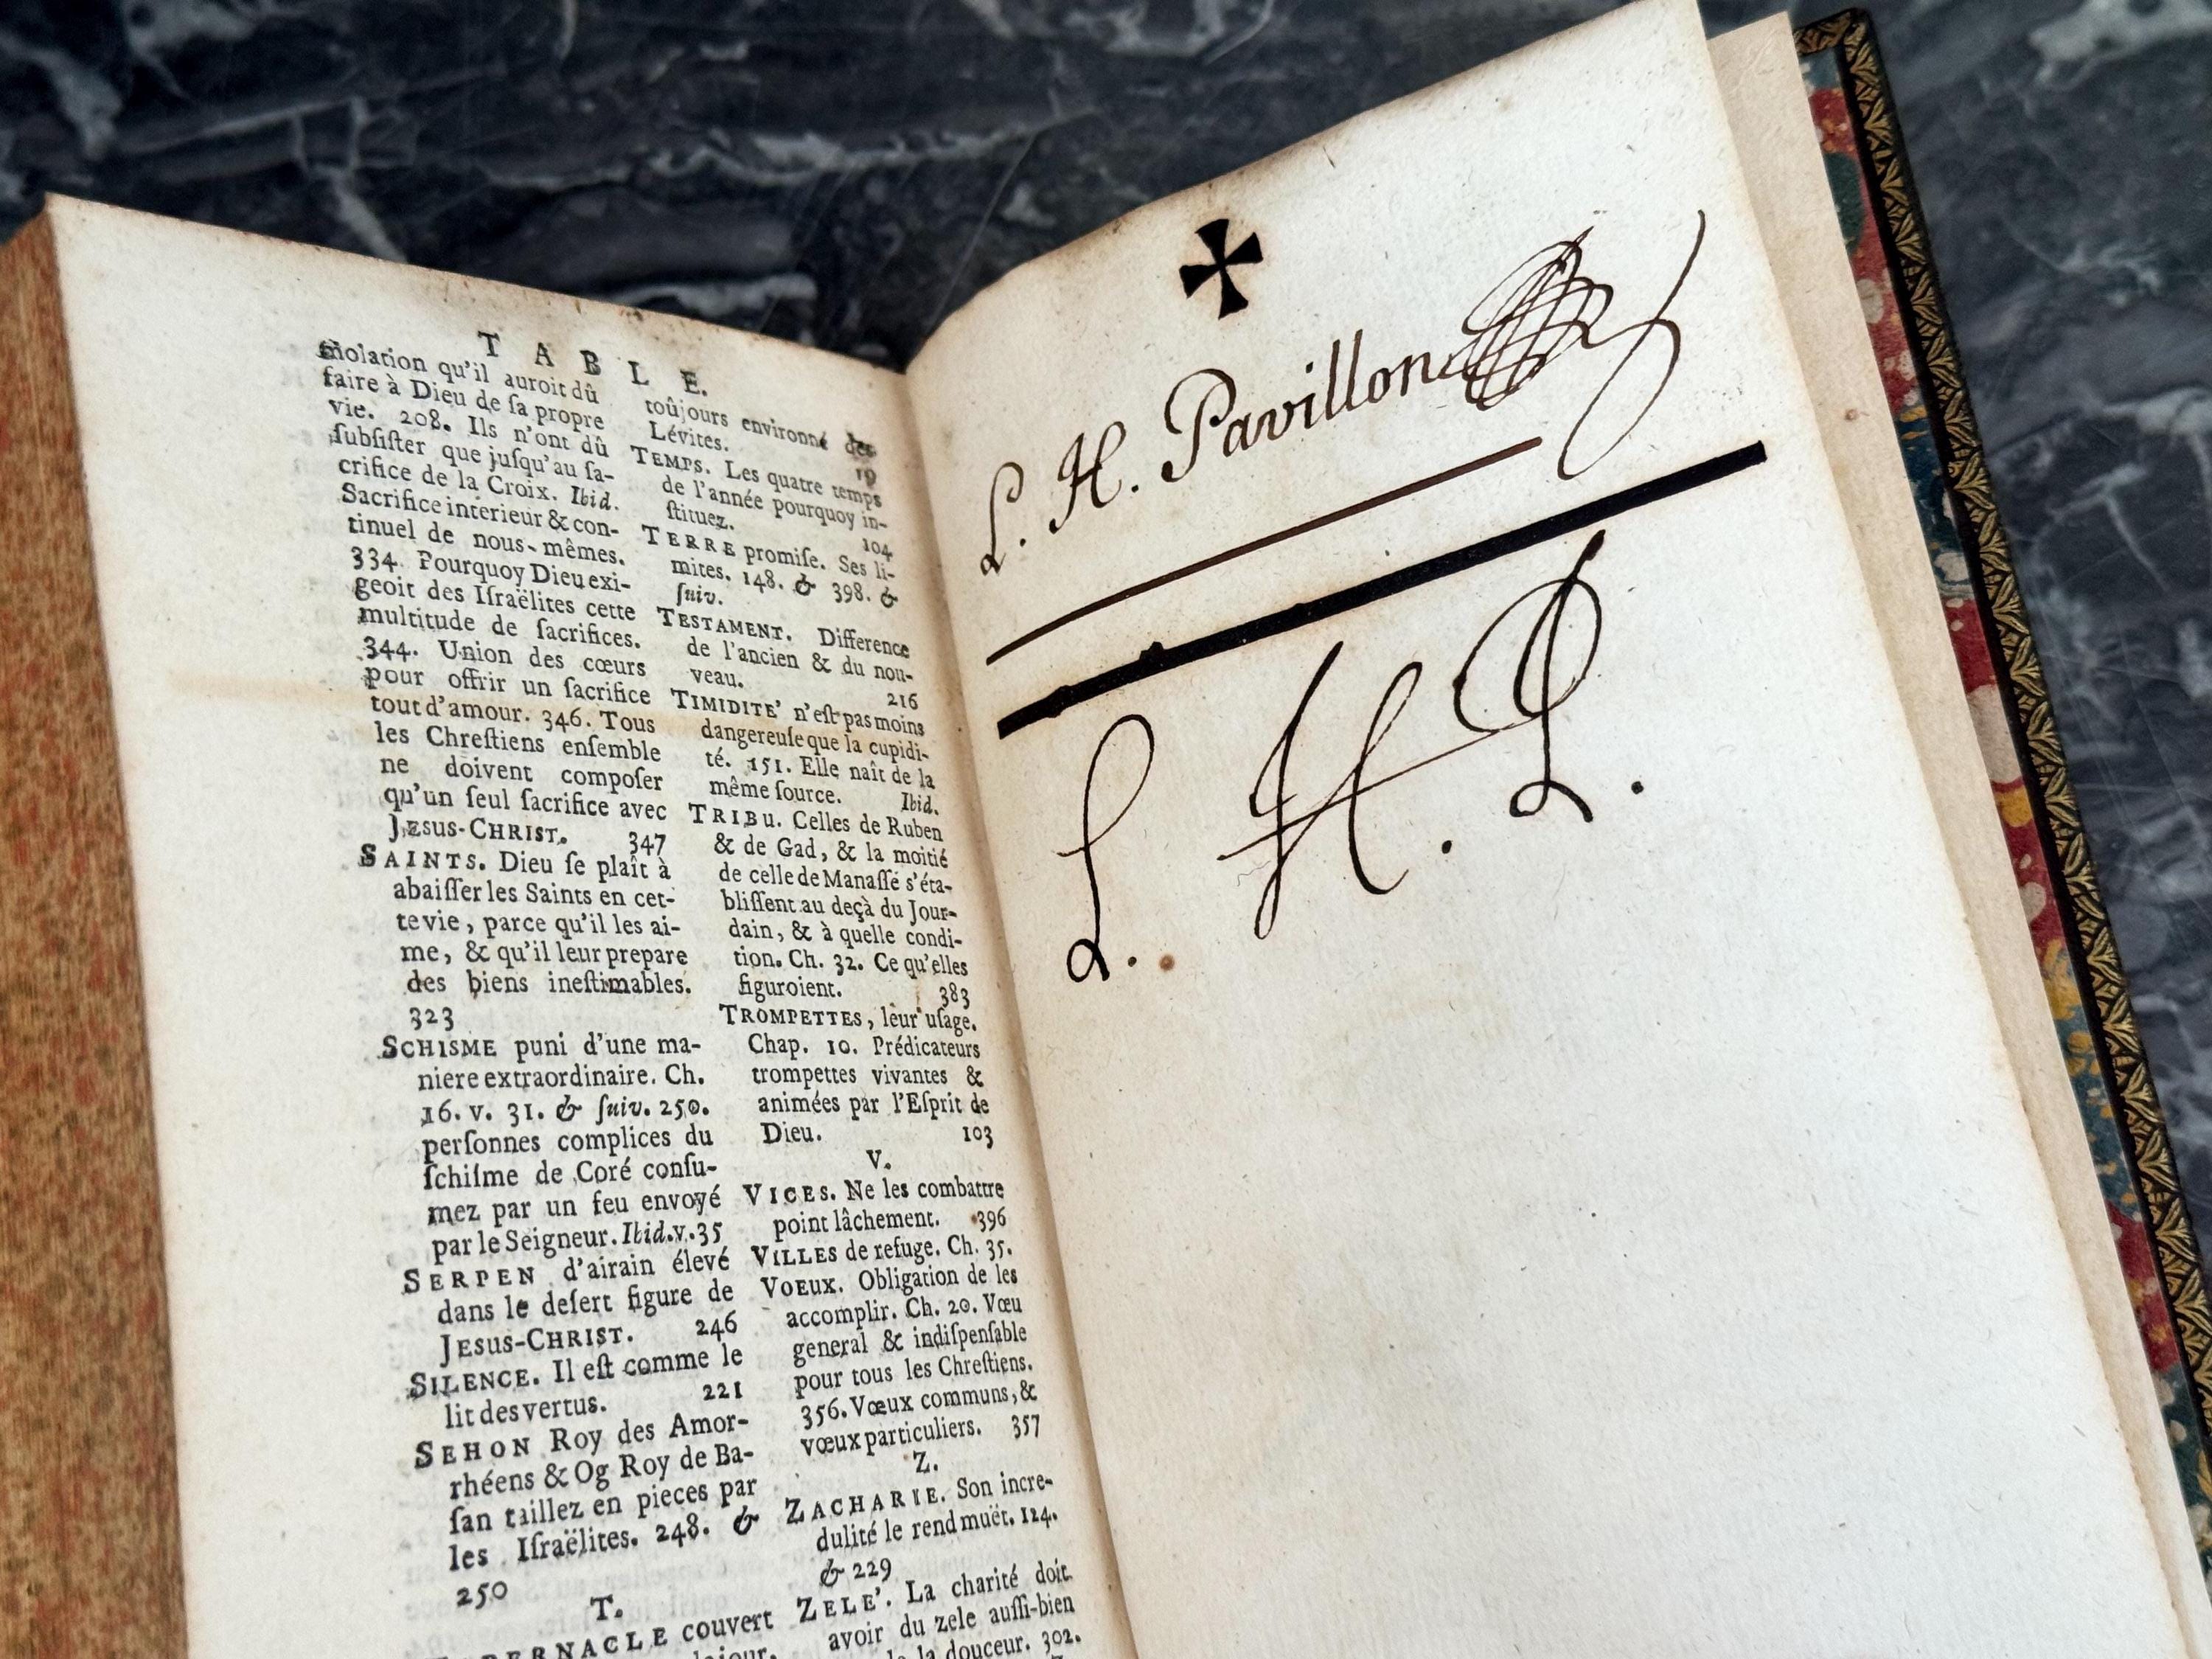 TABLE.
molation qu'il auroit dû
faire à Dieu de ſa propre
vie. 208. Ils n'ont dû
ſubſiſter que juſqu'au ſa-
crifice de la Croix. Ibid.
Sacrifice intérieur & con-
tinuel de nous-mêmes.
334. Pourquoy Dieu exi-
geoit des Iſraëlites cette
multitude de ſacrifices.
344. Union des cœurs
pour offrir un ſacrifice
tout d'amour. 346. Tous
les Chreſtiens enſemble
ne doivent compoſer
qu'un ſeul ſacrifice avec
JESUS-CHRIST. 347
SAINTS. Dieu ſe plaît à
abaiſſer les Saints en cet-
te vie, parce qu'il les ai-
me, & qu'il leur prepare
des biens ineſtimables.
323
SCHISME puni d'une ma-
niere extraordinaire. Ch.
16. v. 31. & ſuiv. 250.
perſonnes complices du
ſchiſme de Coré conſu-
mez par un feu envoyé
par le Seigneur. Ibid. v. 35
SERPEN d'airain élevé
dans le deſert figure de
JESUS-CHRIST. 246
SILENCE. Il eſt comme le
lit des vertus. 221
SEHON Roy des Amor-
rhéens & Og Roy de Ba-
ſan taillez en pieces par
les Iſraëlites. 248. &
250
T.
BERNACLE couvert
toûjours environné des
Lévites. 19
TEMPS. Les quatre temps
de l'année pourquoy in-
ſtituez. 104
TERRE promiſe. Ses li-
mites. 148. & 398. &
ſuiv.
TESTAMENT. Difference
de l'ancien & du nou-
veau. 216
TIMIDITE' n'eſt pas moins
dangereuſe que la cupidi-
té. 151. Elle naît de la
même ſource. Ibid.
TRIBU. Celles de Ruben
& de Gad, & la moitié
de celle de Manaſſé s'éta-
bliſſent au deçà du Jour-
dain, & à quelle condi-
tion. Ch. 32. Ce qu'elles
figuroient. 383
TROMPETTES, leur uſage.
Chap. 10. Prédicateurs
trompettes vivantes &
animées par l'Eſprit de
Dieu. 103
V.
VICES. Ne les combattre
point lâchement. 396
VILLES de refuge. Ch. 35.
VOEUX. Obligation de les
accomplir. Ch. 20. Vœu
general & indiſpenſable
pour tous les Chreſtiens.
356. Vœux communs, &
vœux particuliers. 357
Z.
ZACHARIE. Son incre-
dulité le rend muët. 124.
& 229
ZELE'. La charité doit
avoir du zele auſſi-bien
la douceur. 302.
L. H. Pavillon
L. H. P.